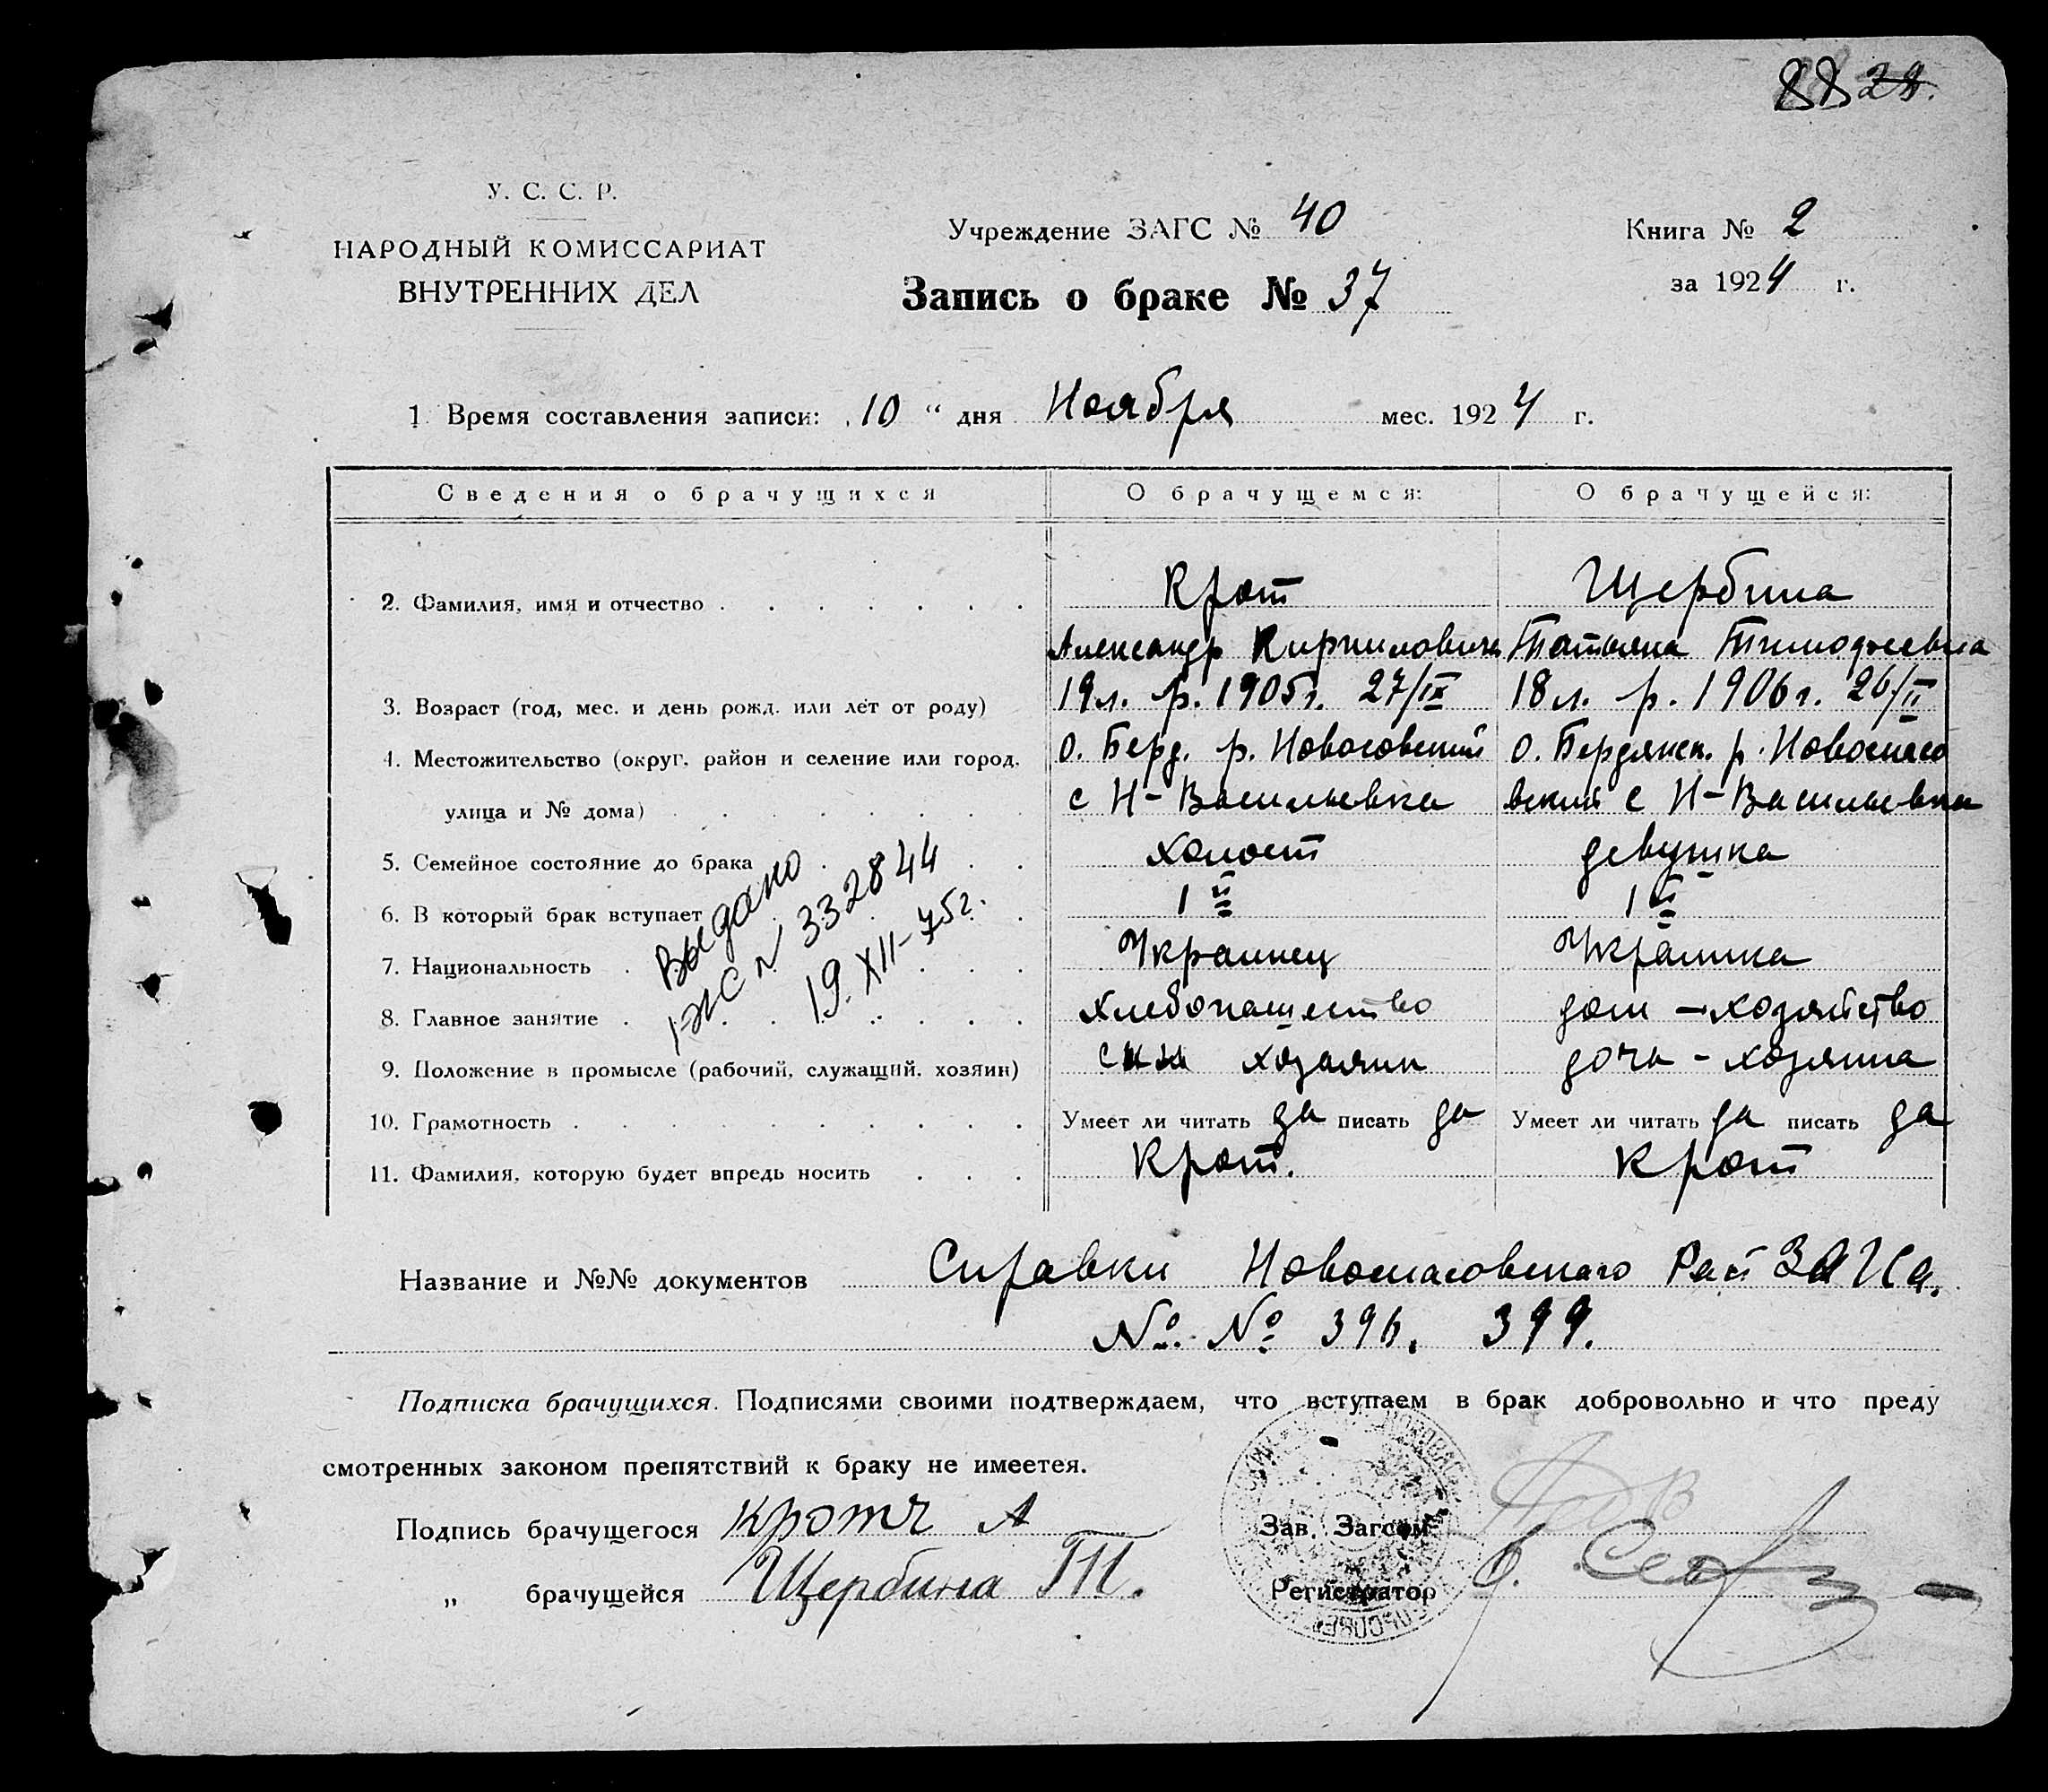 У. С. С. Р.
НАРОДНЫЙ КОМИССАРИАТ
ВНУТРЕННИХ ДЕЛ
Учреждение ЗАГС № 40
Запись о браке № 37
Книга № 2
за 1924 г.
1. Время составления записи: „10“ дня Ноября мес. 1924 г.
Сведения о брачущихся О брачущемся: О брачущейся:
2. Фамилия, имя и отчество Крот Щербина
Александр Кириллович Татьяна Тимофеевна
3. Возраст (год, мес. и день рожд. или лет от роду) 19 л. р. 1905 г. 27/IX 18 л. р. 1906 г. 26/II
4. Местожительство (округ, район и селение или город, о. Берд. р. Новосовский о. Бердянск. р. Новоспасо
улица и № дома) с Н-Васильевка вский с Н-Васильевка
5. Семейное состояние до брака холост девушка
6. В который брак вступает 1й 1й
7. Национальность Украинец Украинка
8. Главное занятие Хлебопашество дом-хозяйство
9. Положение в промысле (рабочий, служащий, хозяин) сын хозяин дочь-хозяина
10. Грамотность Умеет ли читать да писать да Умеет ли читать да писать да
11. Фамилия, которую будет впредь носить Крот. Крот
Выдано
I-ЖС № 332844
19.XII-75г.
Название и №№ документов Справки Новоспасовского Рай ЗАГСа.
№. № 396. 399.
Подписка брачущихся. Подписями своими подтверждаем, что вступаем в брак добровольно и что преду
смотренных законом препятствий к браку не имеетея.
Подпись брачущегося Кротъ А
Зав. Загсом
„ брачущейся Щербина Т.
Регистратор